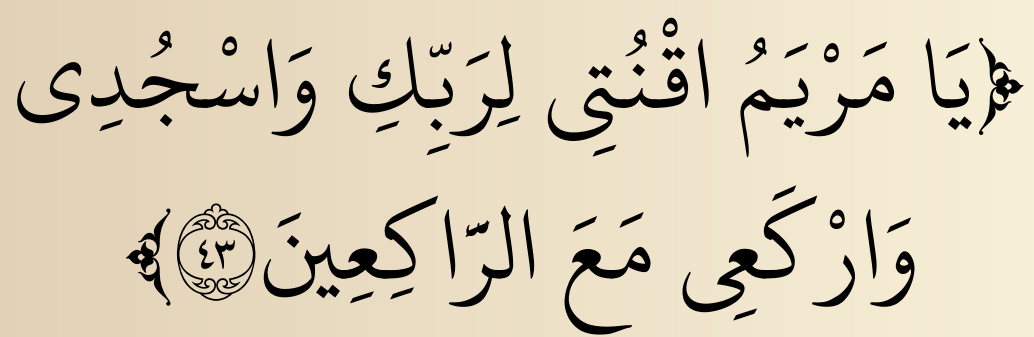 ﴿يَا مَرْيَمُ اقْنُتِى لِرَبِّكِ وَاسْجُدِى
وَارْكَعِى مَعَ الرَّاكِعِينَ ٤٣﴾